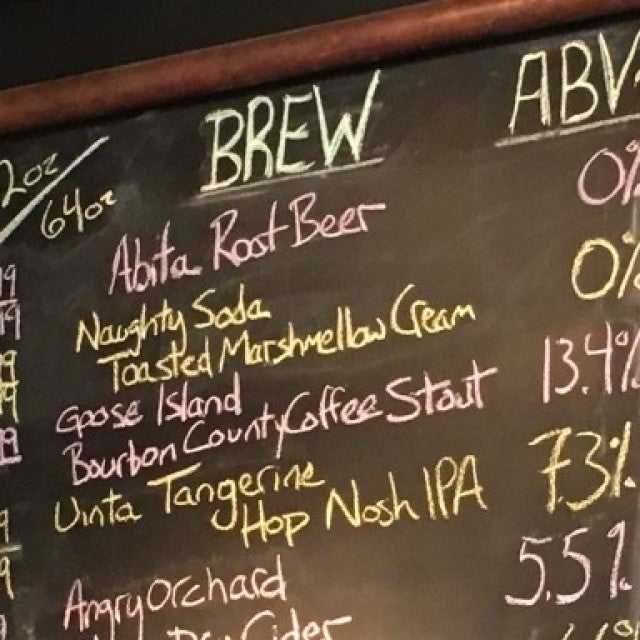 BREW ABV
64oz
Abita Root Beer 0%
Naughty Soda
Toasted Marshmellow Cream 0%
Goose Island
Bourbon County Coffee Stout 13.4%
Uinta Tangerine
Hop Nosh IPA 7.3%
Angry Orchard 5.5%
Dry Cider